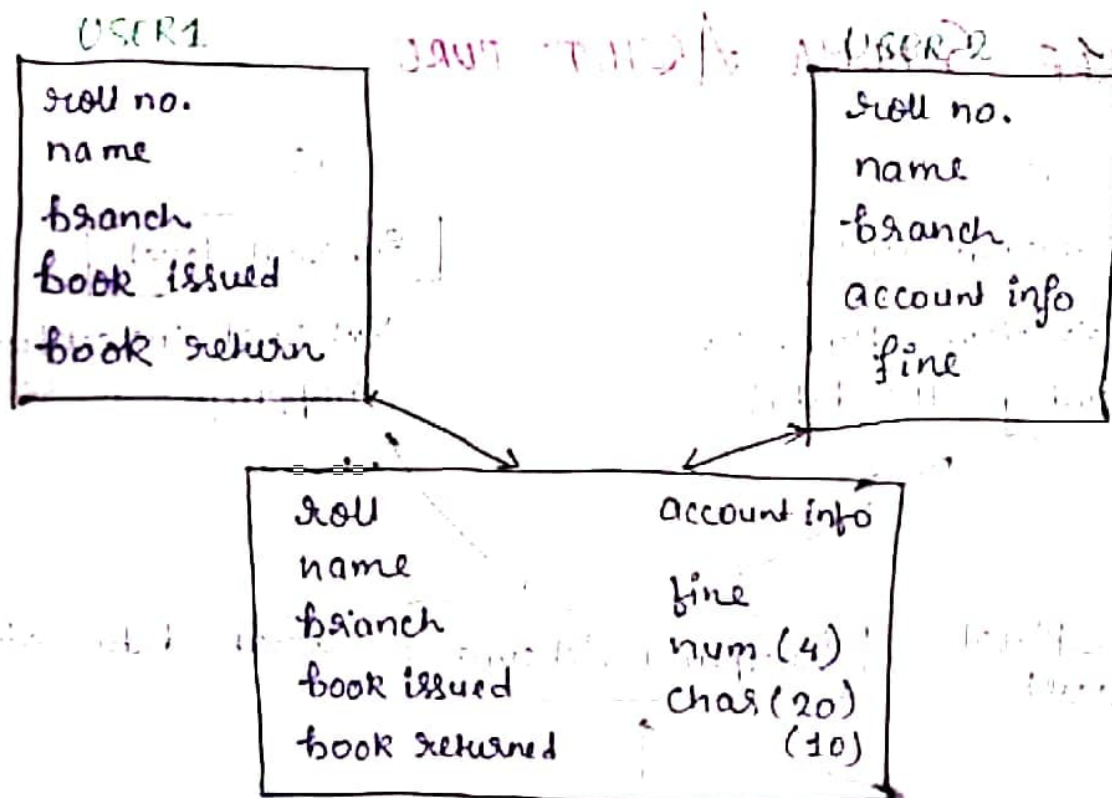 USER1
roll no.
name
branch
book issued
book return
USER-2
roll no.
name
branch
account info
fine
roll
name
branch
book issued
book returned
account info
fine
num (4)
char (20)
(10)